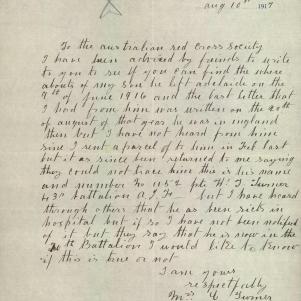 aug 10th 1917
To the australian red Cross society
I have been advised by friends to write
to you to see if you can find the where
abouts of my son he left adelaide on the
9th of June 1916 and the last letter that
I had from him was written on the 20th
of august of that year he was in england
then but I have not heard from him
since I sent a parcel of to him in Feb last
but it as since been returned to me saying
they could not trace him this is his name
and number No 1152 pte H. J. Turner
43rd battalion A.I.F. but I have heard
through others that he as been sick in
hospital but if so I have not been notified
of it but they say that he is now in the
th Battalion I would like to know
if this is true or not
I am yours
respectfully
Mrs Turner